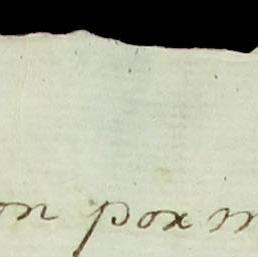 on pox m